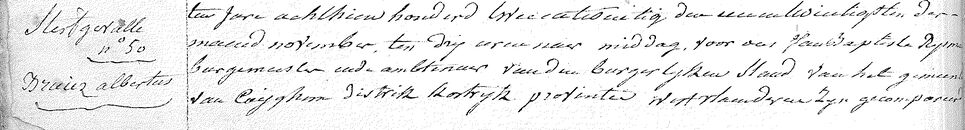 Sterfgevalle
n° 50
Braiez albertus
ten Jare achthien honderd twee entwintig den eenentwintigsten der
maend november, ten dry uren naer middag, voor ons Jan Baptiste
burgemeester ende ambtenaer van den burgerlyken Stand van het gemeen
van Caeyghem distrikt kortryk provintie westvlaenderen zyn gecompareert